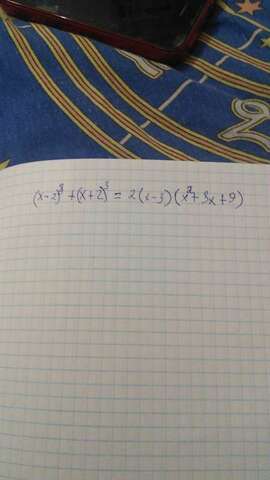 (x-2)³+(x+2)³=2(x-3)(x²+3x+9)